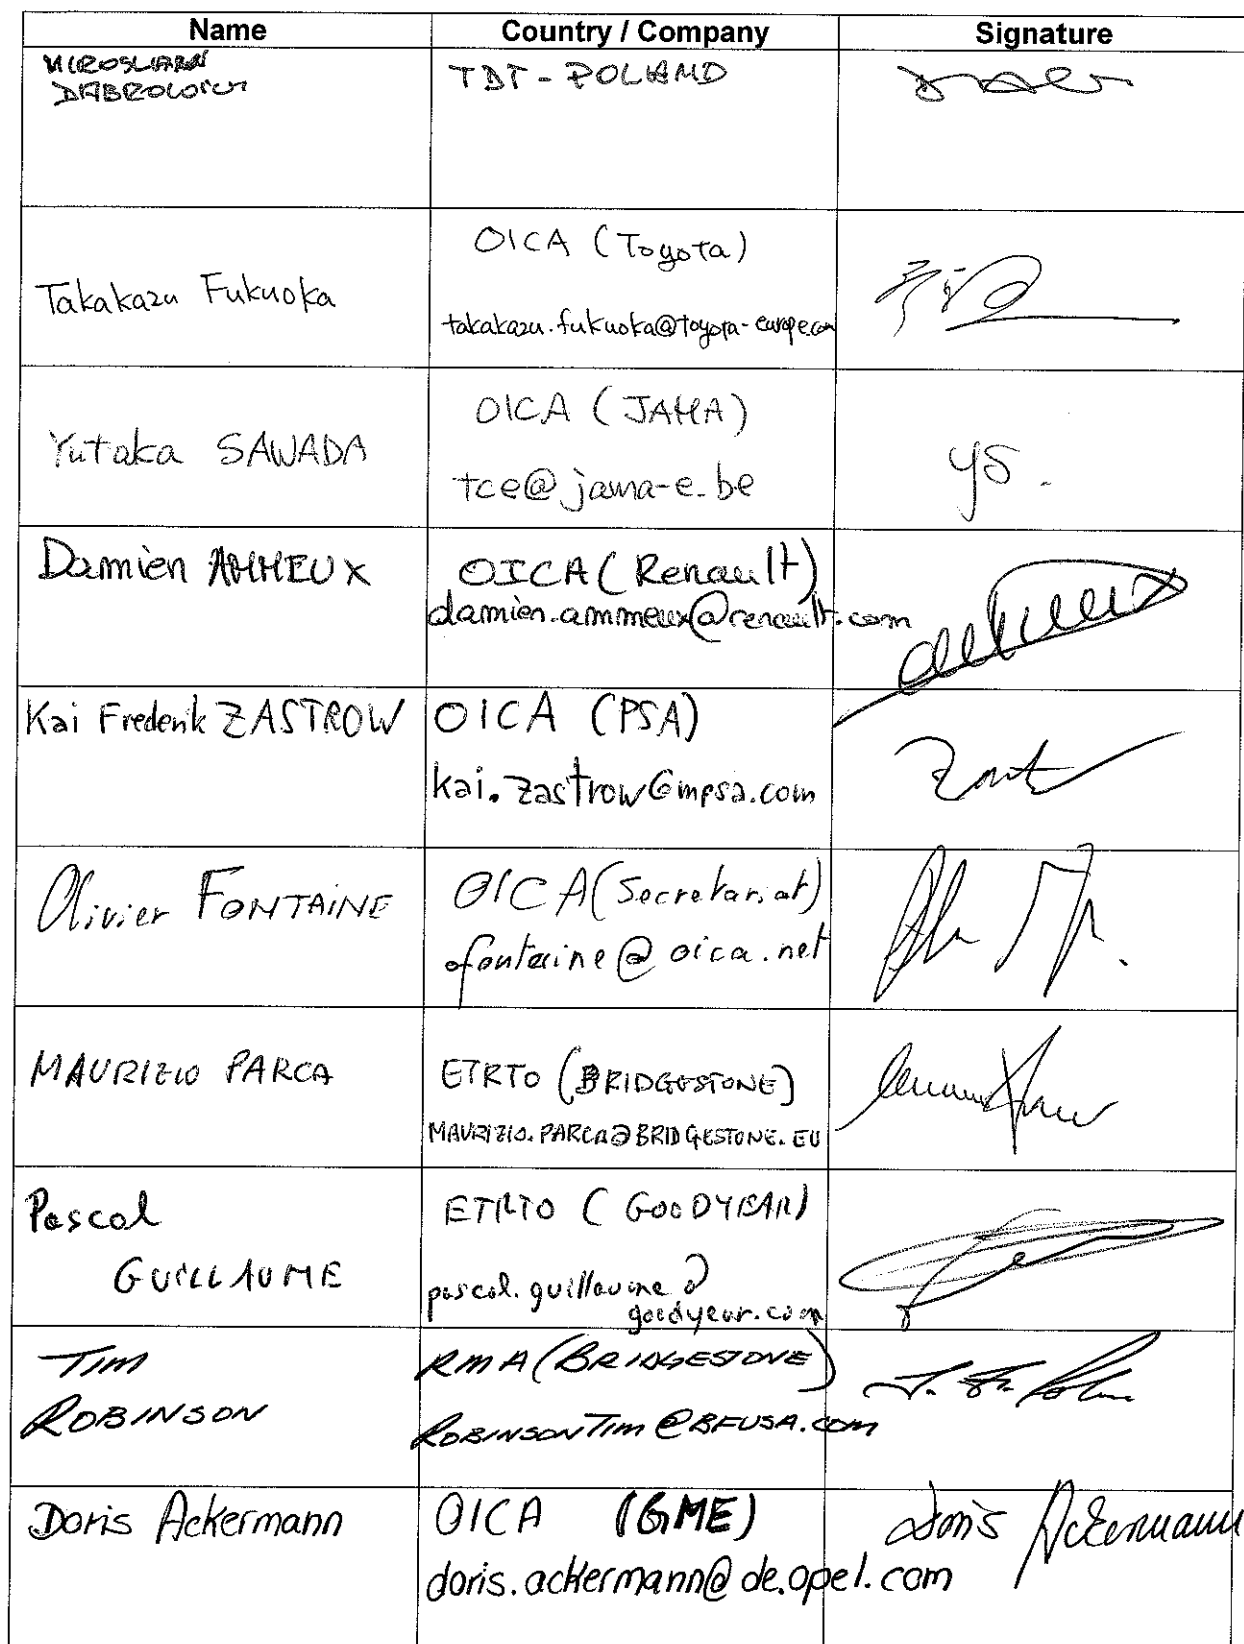 Name Country / Company Signature
TDT - POLAND
Takakazu Fukuoka
OICA (Toyota)
takakazu.fukuoka@toyota-europe.com
Yutaka SAWADA
OICA (JAMA)
tce@jama-e.be
yS.
Damien AMMEUX
OICA (Renault)
damien.ammeux@renault.com
Kai Frederik ZASTROW
OICA (PSA)
kai.zastrow@mpsa.com
Olivier FONTAINE
OICA (Secretariat)
ofontaine@oica.net
MAURIZIO PARCA
ETRTO (BRIDGESTONE)
MAURIZIO.PARCA@BRIDGESTONE.EU
Pascal
GUILLAUME
ETRTO (GOODYEAR)
pascal.guillaume@
goodyear.com
TIM
ROBINSON
RMA (BRIDGESTONE)
ROBINSONTIM@BFUSA.COM
Doris Ackermann
OICA (GME)
doris.ackermann@de.opel.com
Doris Ackermann